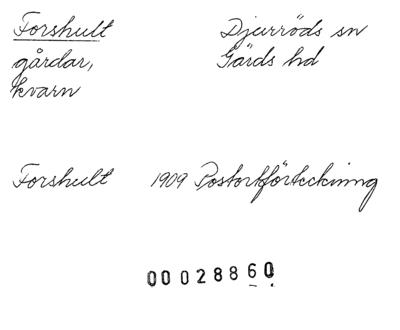 Forshult Djurröds sn
gårdar, Gärds hd
kvarn
Forshult 1909 Postortförteckning
00028860